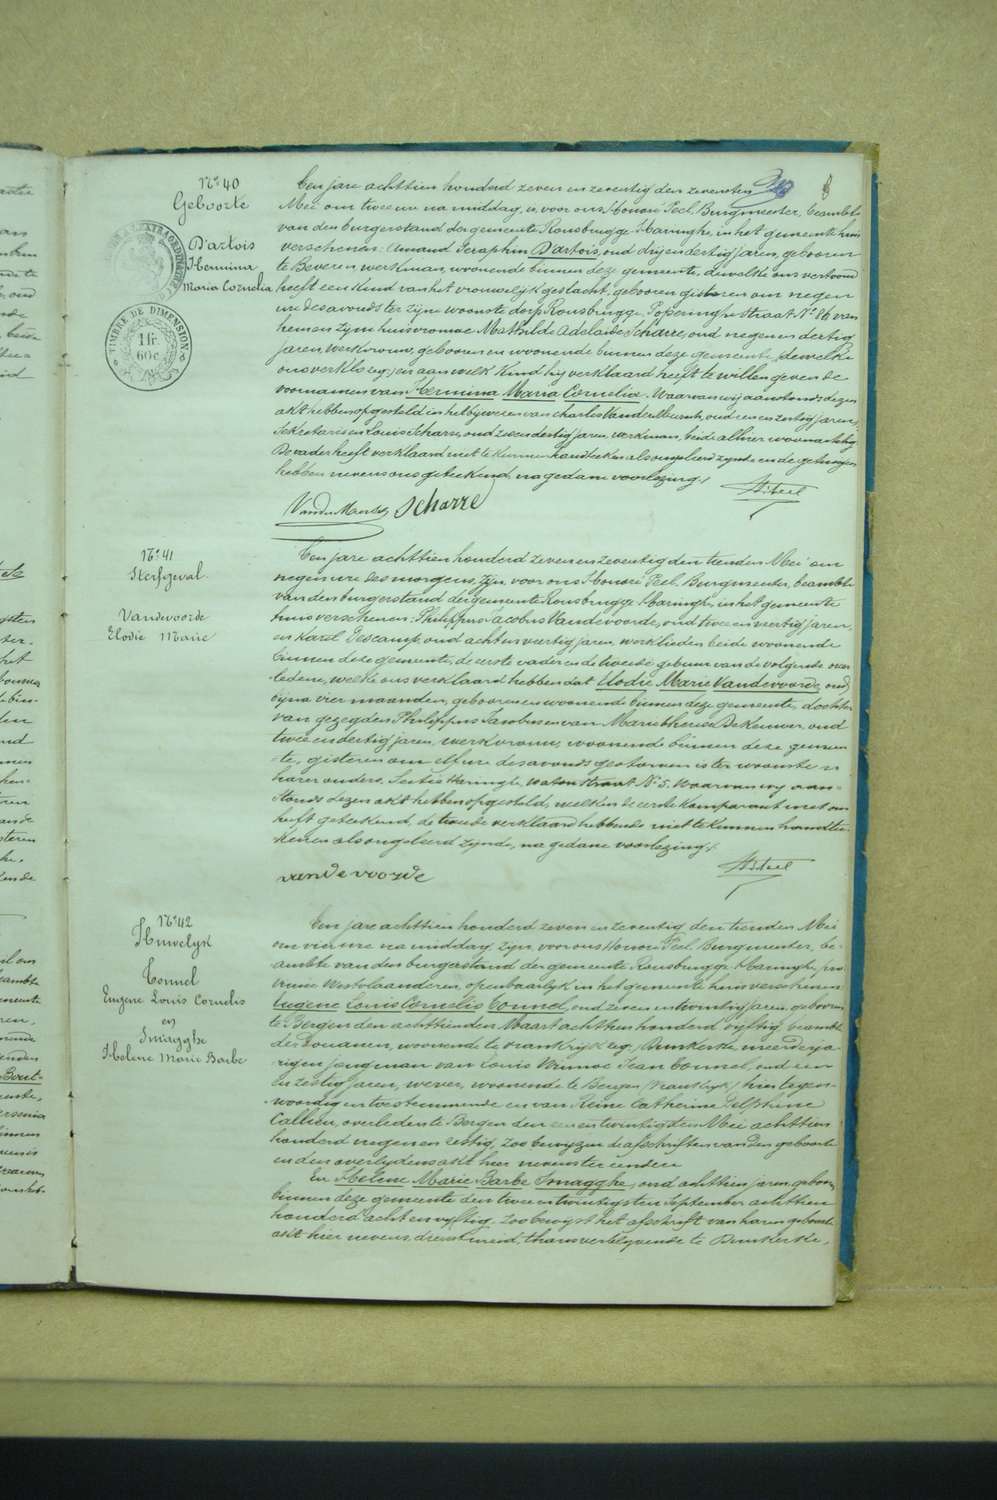 N° 40
Geboorte
D'artois
Hermina
Maria Cornelia
TIMBRE DE DIMENSION
1 fr.
60 c.
Een jare achttien honderd zeven en zeventig den zevensten
Mei om twee ure na middag, is voor ons Honoré Peel, Burgmeester, beambte
van den burgerstand der gemeente Rousbrugge Haringhe, in het gemeente huis
verschenen: Amand Seraphin D'artois, oud drij en dertig jaren, geboren
te Beveren, werkman, woonende binnen deze gemeente, dewelke ons vertoond
heeft een kind van het vrouwelijk geslacht, geboren gisteren om negen
ure des avonds ter zijne woonste dorp Rousbrugge, Poperinghe straat N° 86 van
hem en zijne huisvrouwe Mathilde Adelaide Scharre, oud negen en dertig
jaren, werkvrouw, geboren en woonende binnen deze gemeente, dewelke
ons verklaard en aan welk kind hij verklaard heeft te willen geven de
voornamen van Hermina Maria Cornelia. Waarvan wij aanstonds dezen
akt hebben opgesteld in het bijwezen van charles Vandermeersch, oud een en zestig jaren,
Sekretaris en Louis Scharre, oud zeven dertig jaren, werkman, beide alhier woonachtig
De vader heeft verklaard niet te kunnen handteeken als ongeleerd zijnde en de getuigen
hebben nevens ons geteekend, na gedane voorlezing./.
Scharre
H. Peel
N° 41
Sterfgeval
Vandevoorde
Elodie Marie
Een jare achttien honderd zeven en zeventig den tienden Mei om
negen ure des morgens, zijn voor ons Honoré Peel, Burgmeester, beambte
van den burgerstand der gemeente Rousbrugge Haringhe, in het gemeente
huis verschenen: Philippus Jacobus Vandevoorde, oud twee en veertig jaren,
en Karel Descamp, oud acht en veertig jaren, werklieden beide woonende
binnen deze gemeente, de eerste vader en de tweede gebuur van de volgende over
ledene, welke ons verklaard hebben dat Elodie Marie Vandevoorde, oud
bijna vier maanden, geboren en woonende binnen deze gemeente, dochter
van gezegden Philippus Jacobus en van Marie Therese Dekeuwer, oud
twee en dertig jaren, werkvrouw, woonende binnen deze gemeen
te, gisteren om elf ure des avonds gestorven is ter woonste
harer ouders, Sectie Haringhe, Waton straat N° 5. Waarvan wij aan-
stonds dezen akt hebben opgesteld, welken de eerste komparant met ons
heeft geteekend, de tweede verklaard hebbende niet te kunnen handtee
kenen als ongeleerd zijnde, na gedane voorlezing./.
vandevoorde
H. Peel
N° 42
Huwelyk
Connel
Eugene Louis Cornelis
en
Smagghe
Helene Marie Barbe
Een jare achttien honderd zeven en zeventig den tienden Mei
om vier ure na middag, zijn voor ons Honoré Peel, Burgmeester, be-
ambte van den burgerstand der gemeente Rousbrugge Haringhe, pro
vincie Westvlaanderen, openbaarlijk in het gemeente huis verschenen
Eugene Louis Cornelis Connel, oud zeven en twintig jaren, geboren
te Bergen den achttienden Maart achttien honderd vyftig, beambte
der Douanen, woonende te vrankrijk zeg, Dunkerke, meerderja
rigen jongman van Louis Jean Connel, oud een
en zestig jaren, wever, woonende te Bergen (Frankrijk) hier tegen-
woordig en toestemmende en van Reine Catherine Delphine
Callieu, overleden te Bergen den en twintigsten Mei achttien
honderd negen en zestig, zoo bewijzen de afschriften van den geboorte
en den overlijdens akt hier nevens
En Helene Marie Barbe Smagghe, oud achttien jaren, geboren
binnen deze gemeente den twee en twintigsten September achttien
honderd acht en vyftig, zoo bewijst het afschrift van haren geboorte
akt hier nevens, dienstmeid, thans verblijvende te Dunkerke,